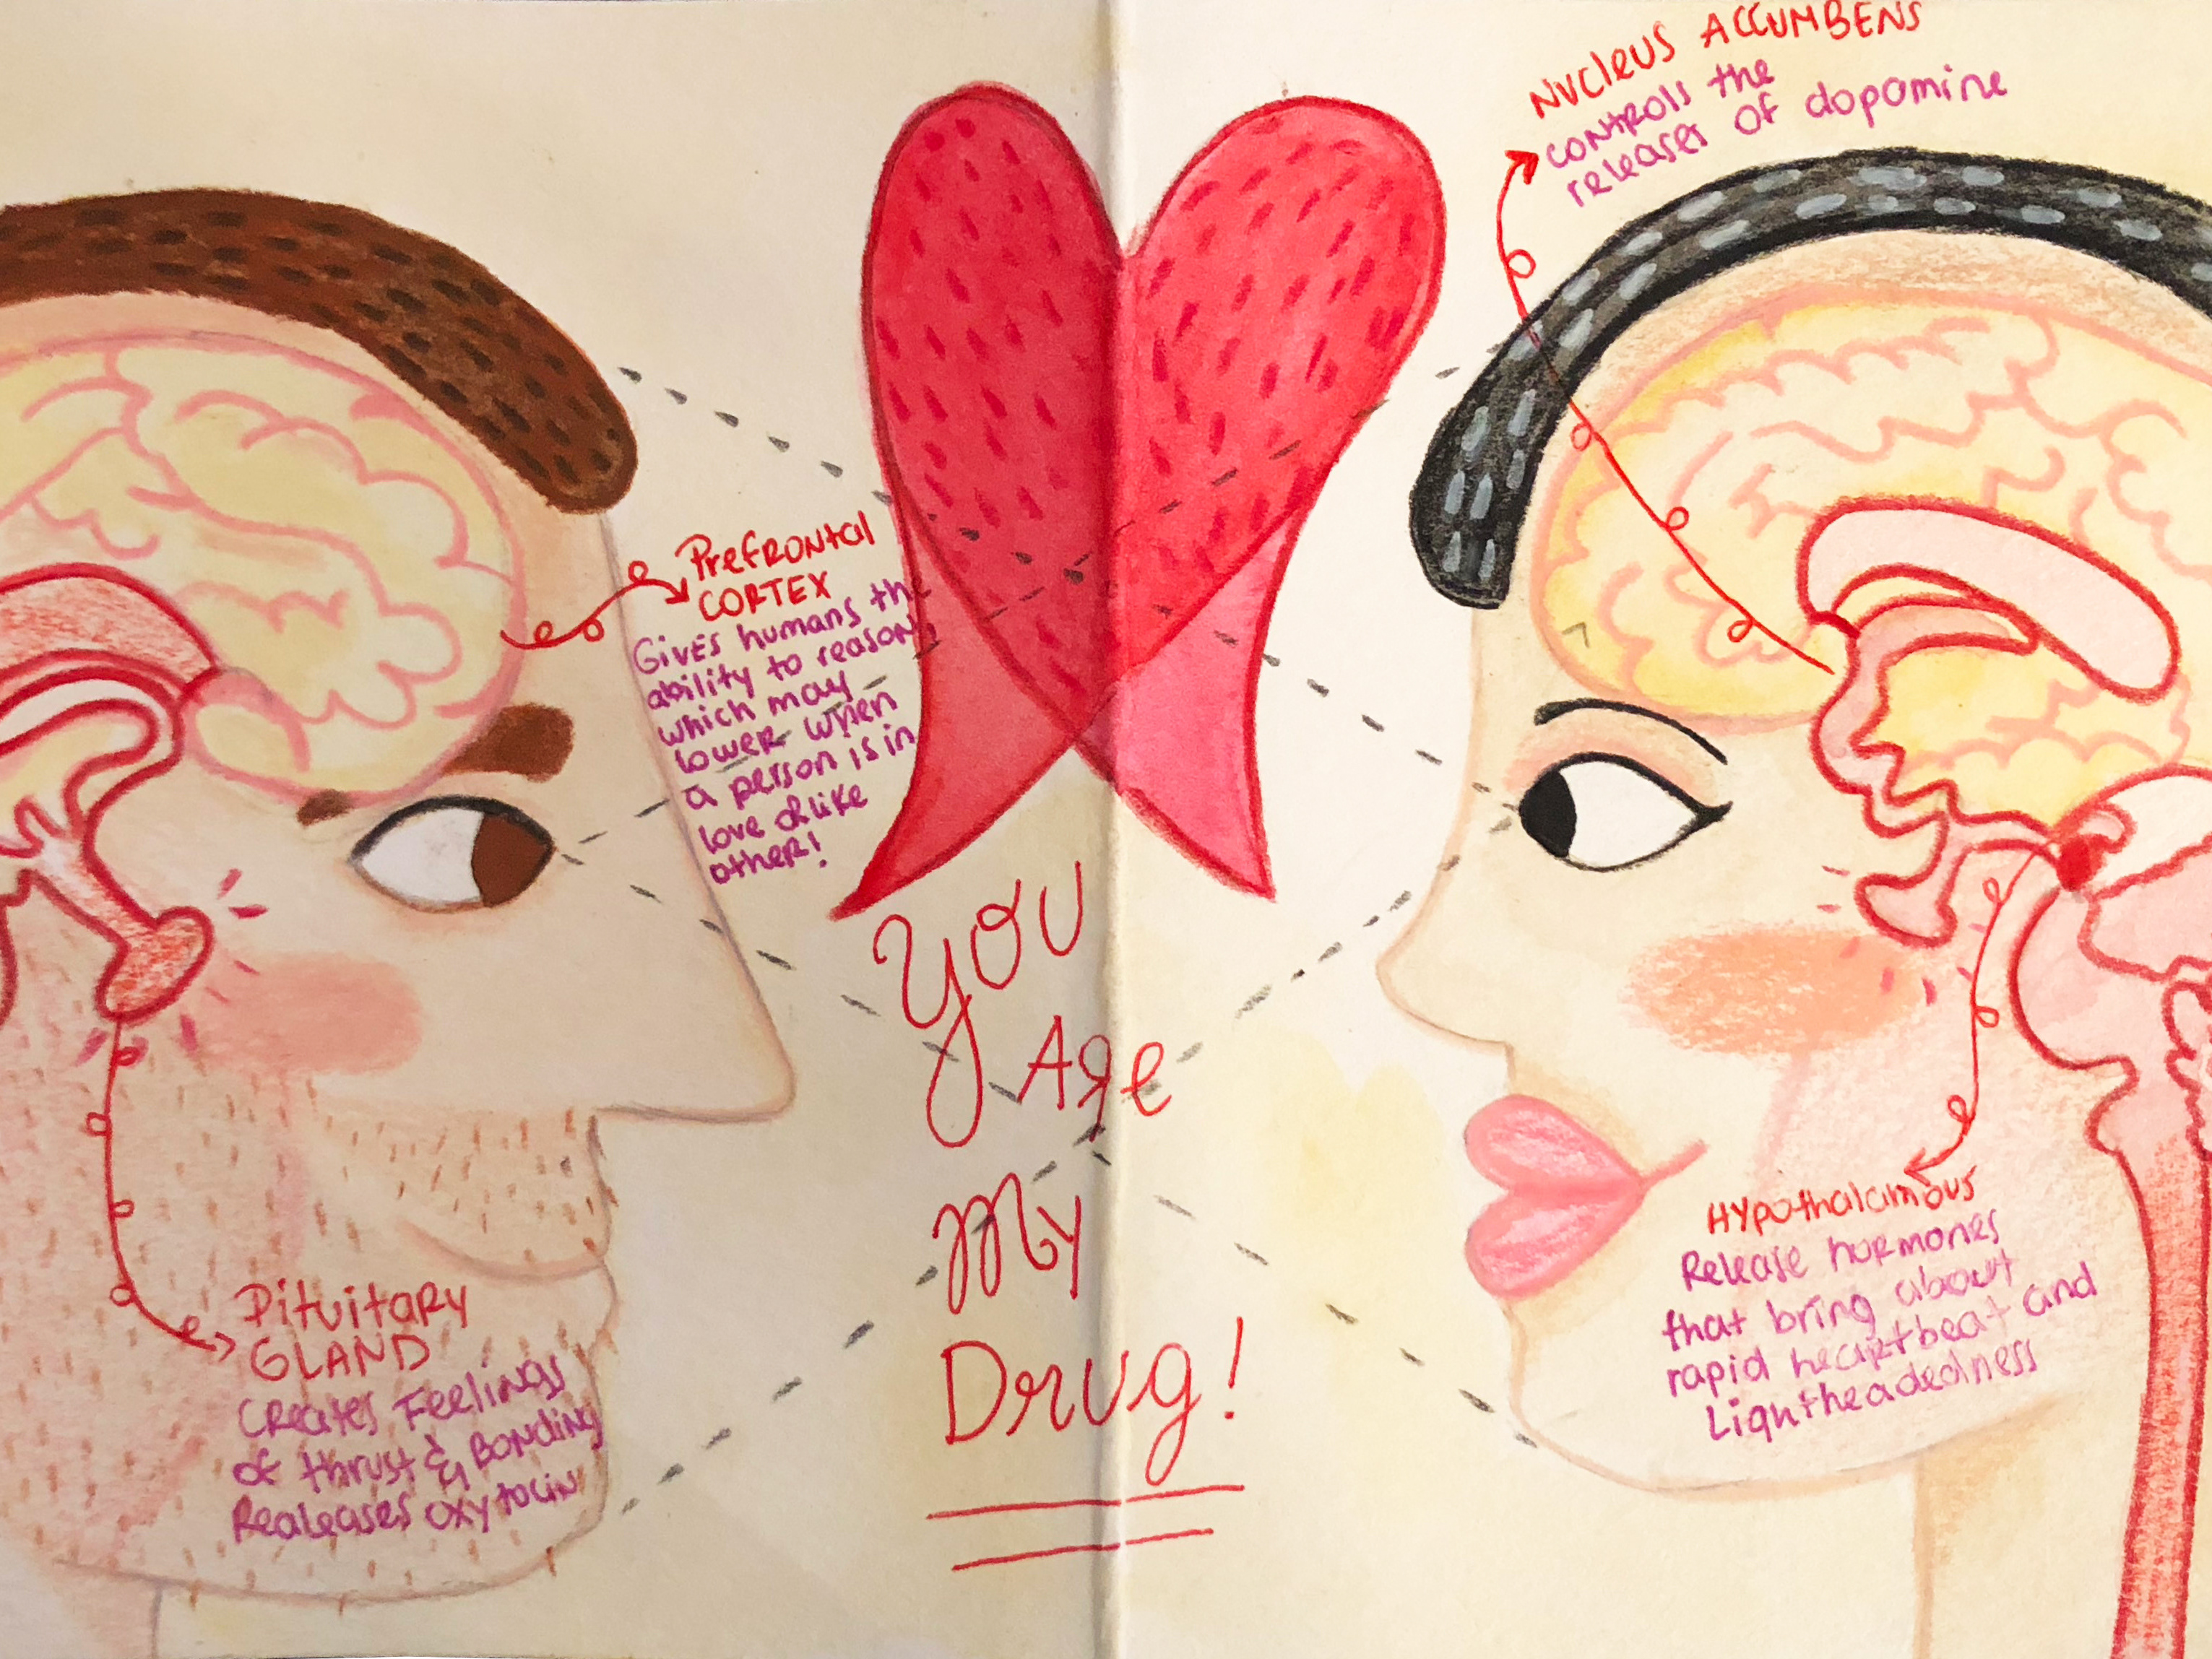 NUCleUS ACCUMBENS
CONtROls the
releases of dopamine
PreFRONtal
CORTEX
GivEs humans the
ability to reason
which may
lower when
a person is in
love or like
other!
You
Are
My
Drug!
Pituitary
GLAND
Creates Feelings
of thrust & Bonding
Realeases oxytocin
HYpothalamous
Release hormones
that bring about
rapid heartbeat and
Lightheadedness